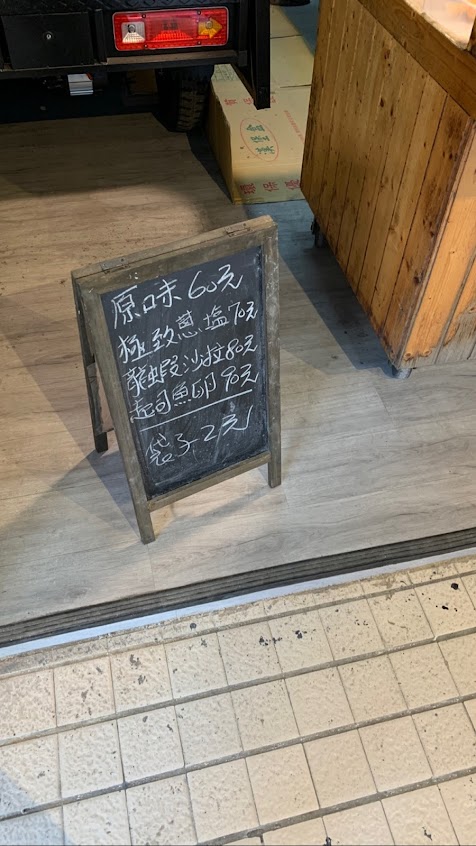 原味 60元
極致蔥塩70元
龍蝦沙拉80元
起司魚卵 90元
袋子 2元